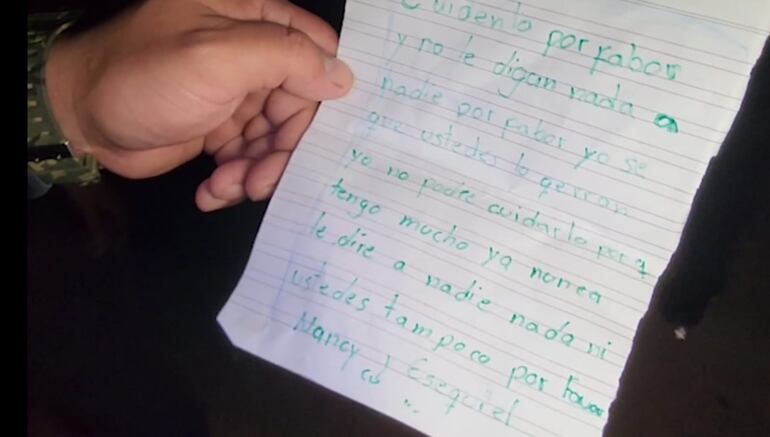 Cuidenlo porfabor
y no le digan nada a
nadie por fabor yo se
que ustedes lo qerran
yo no podre cuidarlo porq
tengo mucho ya nonca
le dire a nadie nada ni
ustedes tampoco por
Nancy y Esequiel